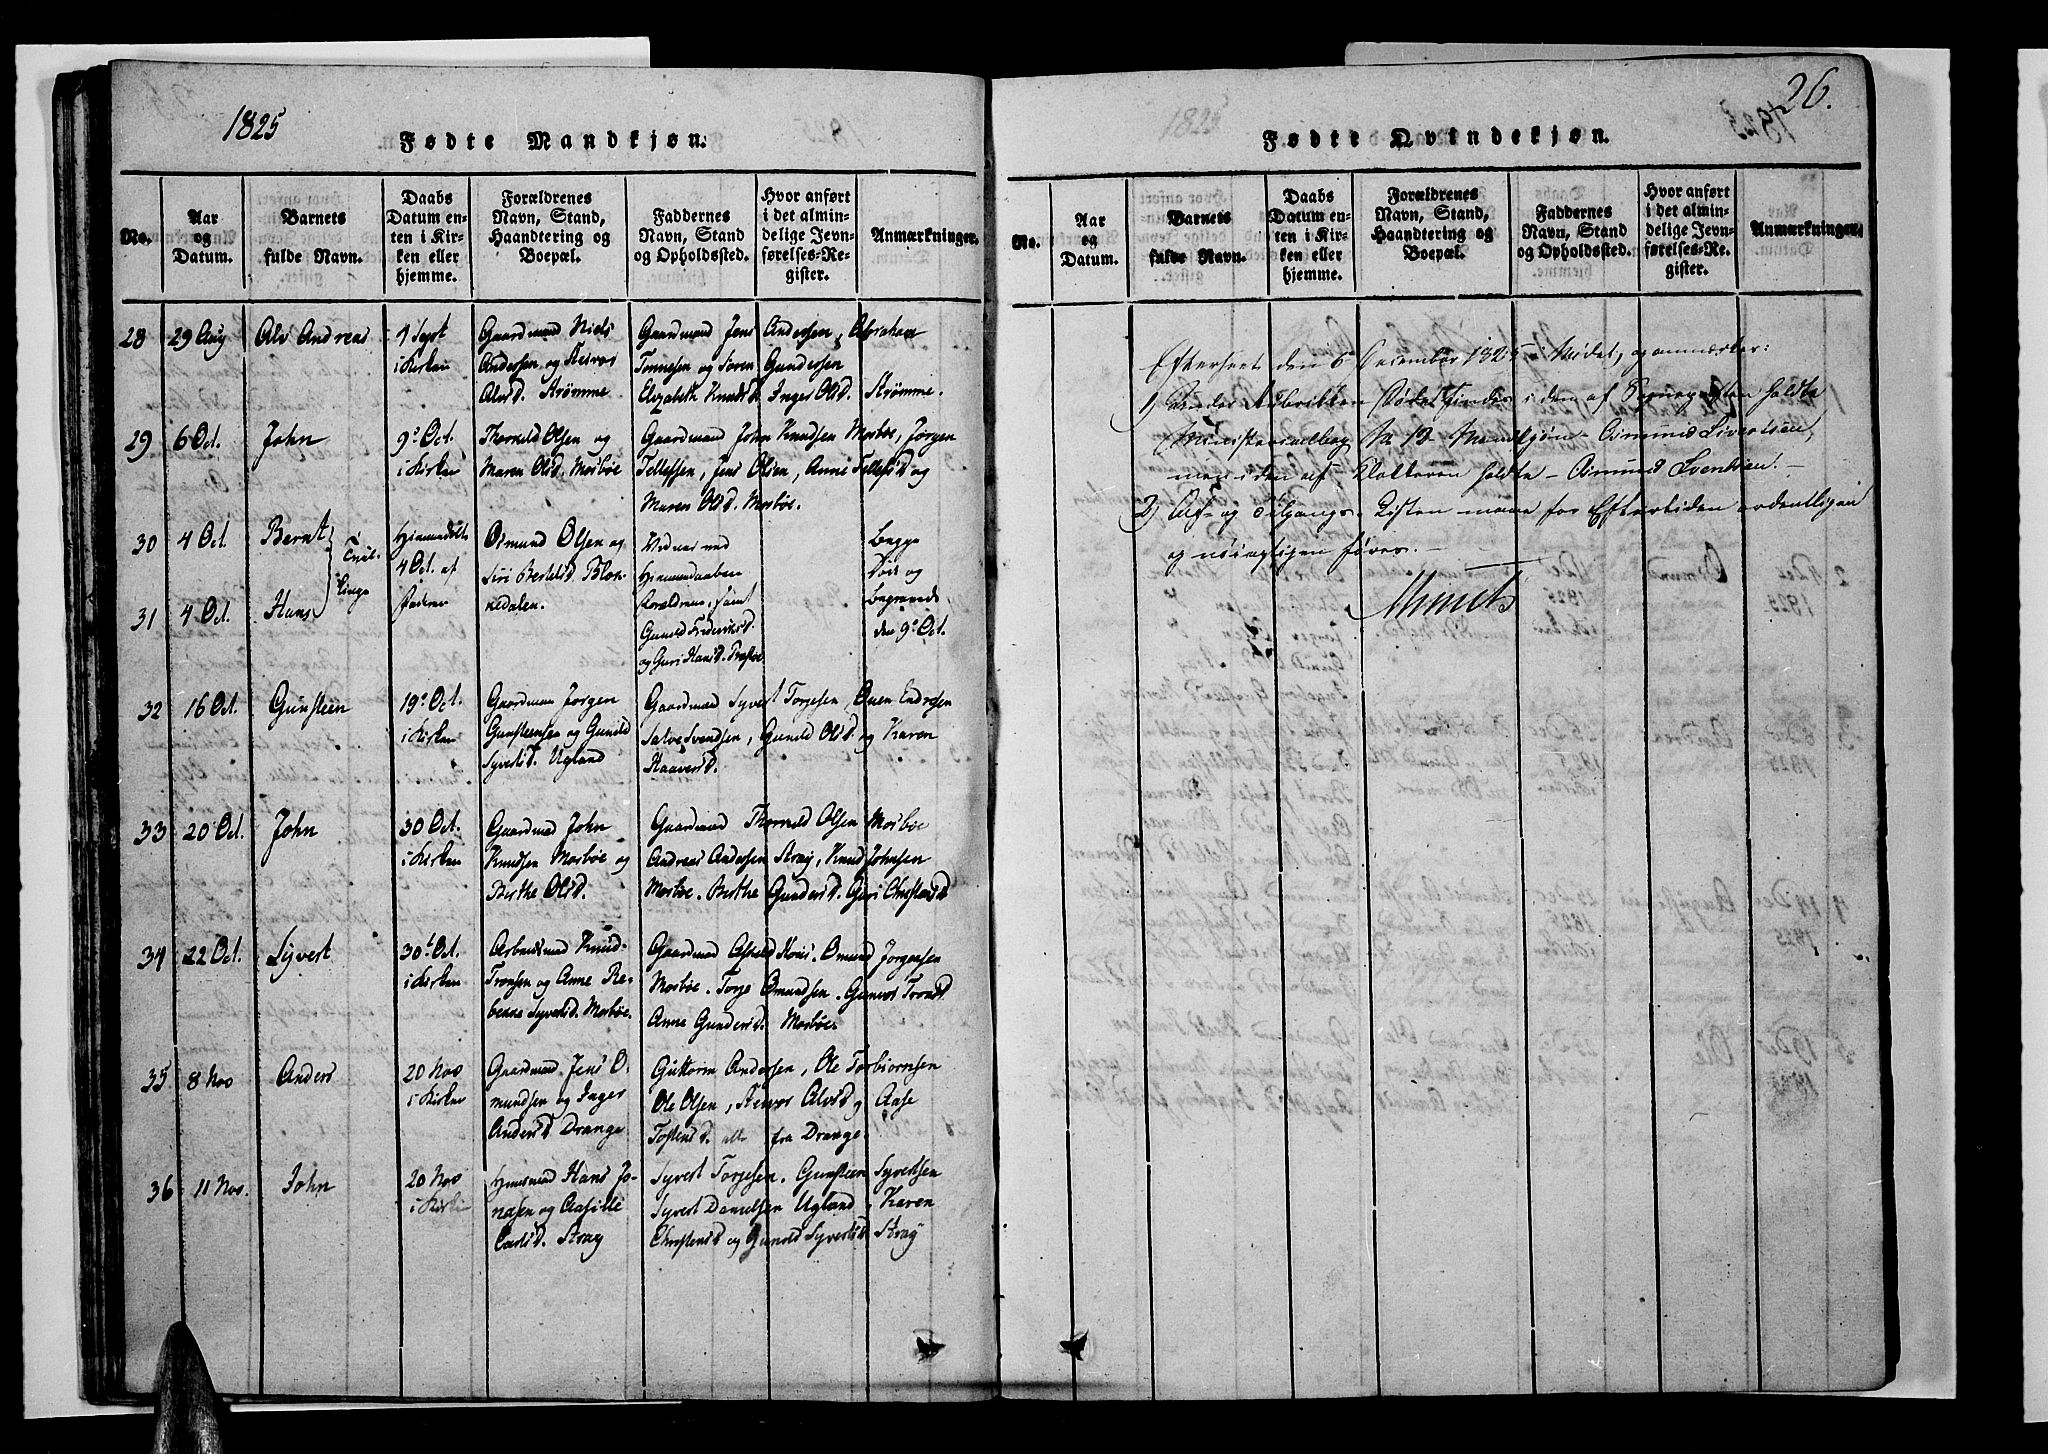 1825
Fødte Mandkjøn.
No.
Aar
og
Datum.
Barnets
fulde Navn.
Daabs
Datum en-
ten i Kir-
ken eller
hjemme.
Forældrenes
Navn, Stand,
Haandtering og
Boepæl.
Faddernes
Navn, Stand
og Opholdssted.
Hvor anført
i det almin-
delige Jevn-
førelses-Re-
gister.
Anmærkninger.
28
29 Aug
Alv Andreas
4 Sept
i Kirken
Gaardmand Niels
Andersen og
Alvsd. Strømme
Gaardmand Jens Andersen, Abraham
Tønnesen og Søren Gundersen
Elizabeth Knudsd Inger Olsd. Strømme.
29
6 Oct.
John
9de Oct.
i Kirken
Thorkild Olsen og
Maren Olsd. Mosbøe
Gaardmand John Knudsen Mosbøe, Jørgen
Tellefsen, Jens Olsen, Anne Tellefsd og
Maren Olsd. Mosbøe.
30
4 Oct.
Bernt
Tvil-
linge
Hiemmedøbt
4 Oct. af
Faderen
Osmund Olsen og
Siri Bertelsd. Blok-
kedalen.
Vidner ved
Hiemmedaaben
Forældrene, samt
Gunild Frederiksd.
og Guri Hansd.
Begge
Døde og
begravede
den 9de Oct.
31
4 Oct.
Hans
32
16 Oct.
Gunsteen
19de Oct.
i Kirken
Gaardman Jørgen
Gunsteensen og Gunild
Syvertsd. Ugland
Gaardmand Syvert Torjesen, Ouen Endresen
Salve Svendsen, Gunild Olsd og Karen
Haaversd.
33
20 Oct.
John
30 Oct.
i Kirken
Gaardmand John
Knudsen Mosbøe og
Berthe Olsd.
Gaardmand Thorkild Olsen Mosbøe
Andreas Andersen Stray, Knud Johnsen
Mosbøe. Berthe Gundersd. Guri Christensd
34
22 Oct.
Syvert
30t Oct.
i Kirken
Arbeidsmand Knud
Tronsen og Anne Re-
bekka Syvertsd. Mosbøe.
Gaardmand Osmund Jørgensen
Mosbøe. Torje Omundsen. Gunvor Trondsd
Anne Gundersd. Mosbøe.
35
8 Nov
Anders
20 Nov
i Kirken
Gaardmand Jens O-
mundsen og Inger
Andersd Drange
Guttorm Andersen, Ole Torbiørnsen
Ole Olsen, Alvsd og Aase
Tostensd. alle fra Drange
36
11 Nov.
John
20 Nov
i Kirken
Huusmand Hans Jo-
nasen og Aasille
Carlsd. Stray
Syvert Torjesen. Gunsteen Syvertsen
Syvert Danielsen Ugland, Karen
Christensd og Gunild Syvertsd Stray
26.
Fødte Qvindekjøn.
No.
Aar
og
Datum.
Barnets
fulde Navn.
Daabs
Datum en-
ten i Kir-
ken eller
hjemme.
Forældrenes
Navn, Stand,
Haandtering og
Boepæl.
Faddernes
Navn, Stand
og Opholdssted.
Hvor anført
i det almin-
delige Jevn-
førelses-Re-
gister.
Anmærkninger.
Efterseet den 6 December 1825 i og anmærkes:
1) Under Rubrikken Fødte findes i den af Sognepræsten holdte
Ministerialbog No 19 Mandkjøn - Osmund Sivertsen,
men i den af Klokkeren holdte - Osmund Svendsen. -
2) Af- og Tilgangs-Listen maae for Eftertiden ordentligen
og nøiagtigen føres. -